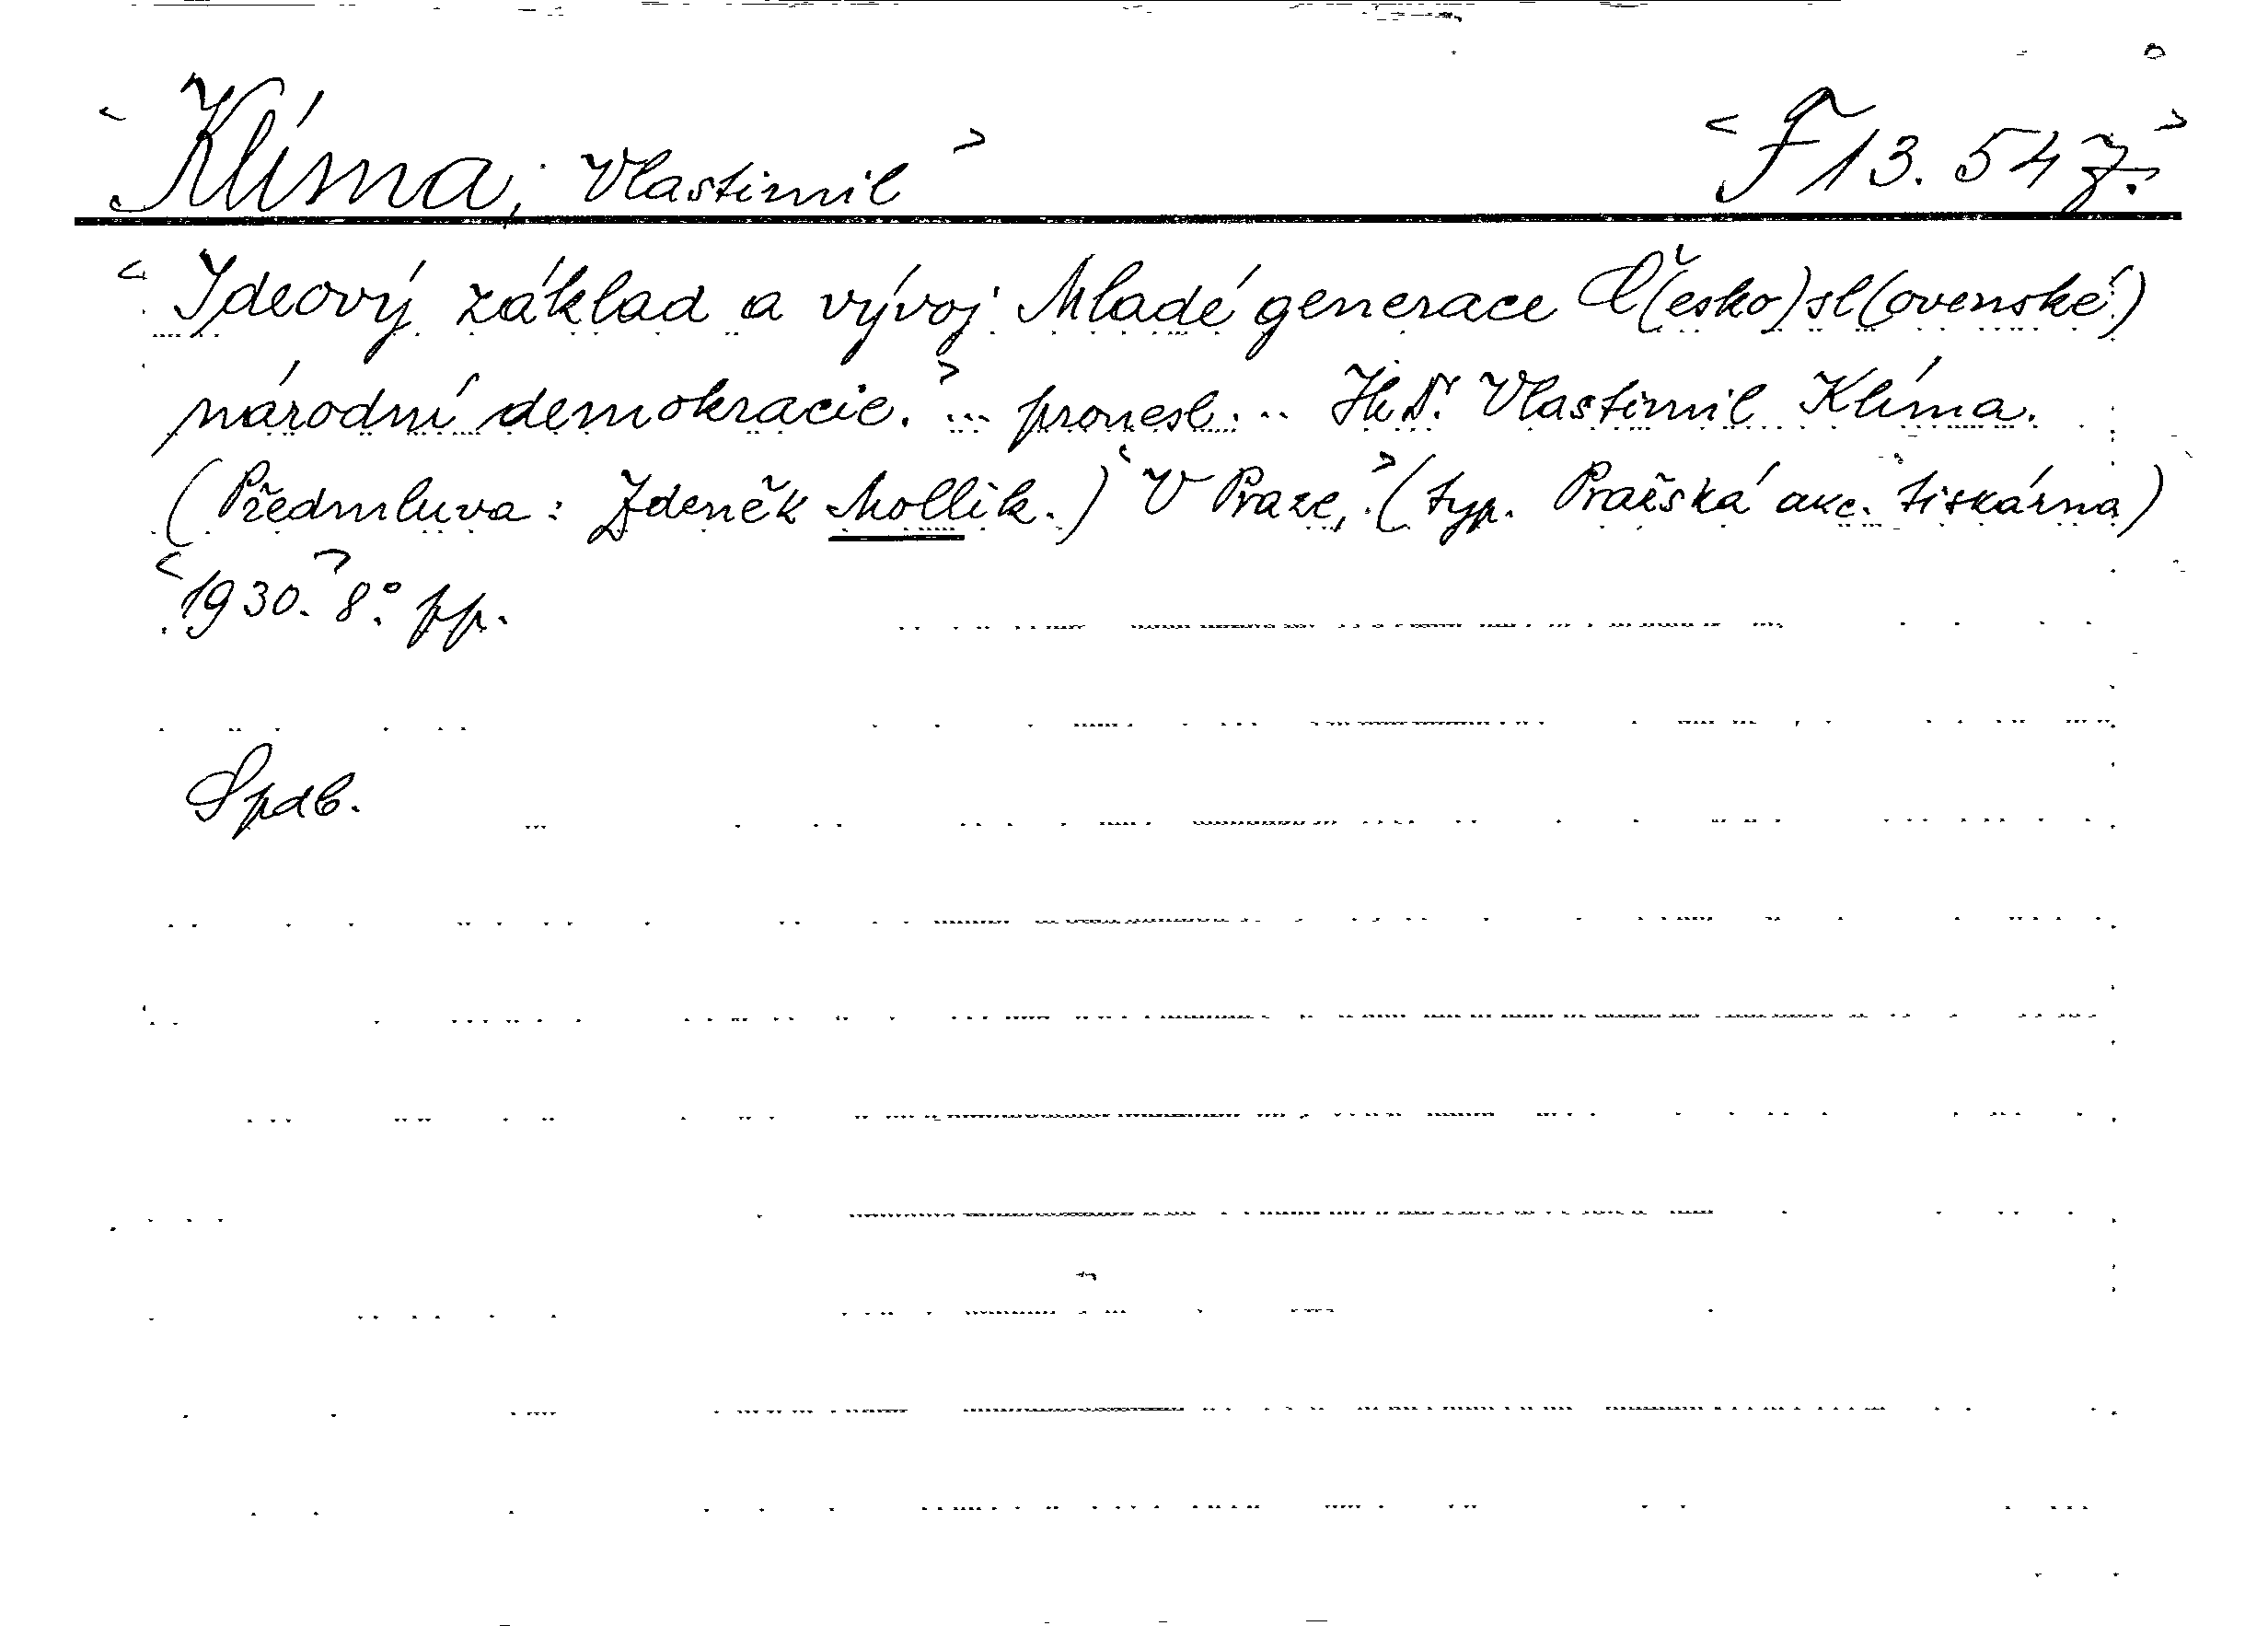 <Klíma, Vlastimil> <F 13.547.>
<Ideový základ a vývoj Mladé generace Č(esko)sl(ovenské)
národní demokracie.> ... pronesl... JUDr. Vlastimil Klíma.
(Předmluva: Zdeněk Mollik.) <V Praze,> (typ. Pražská akc. tiskárna)
<1930.> 8°. pp.
Spdb.